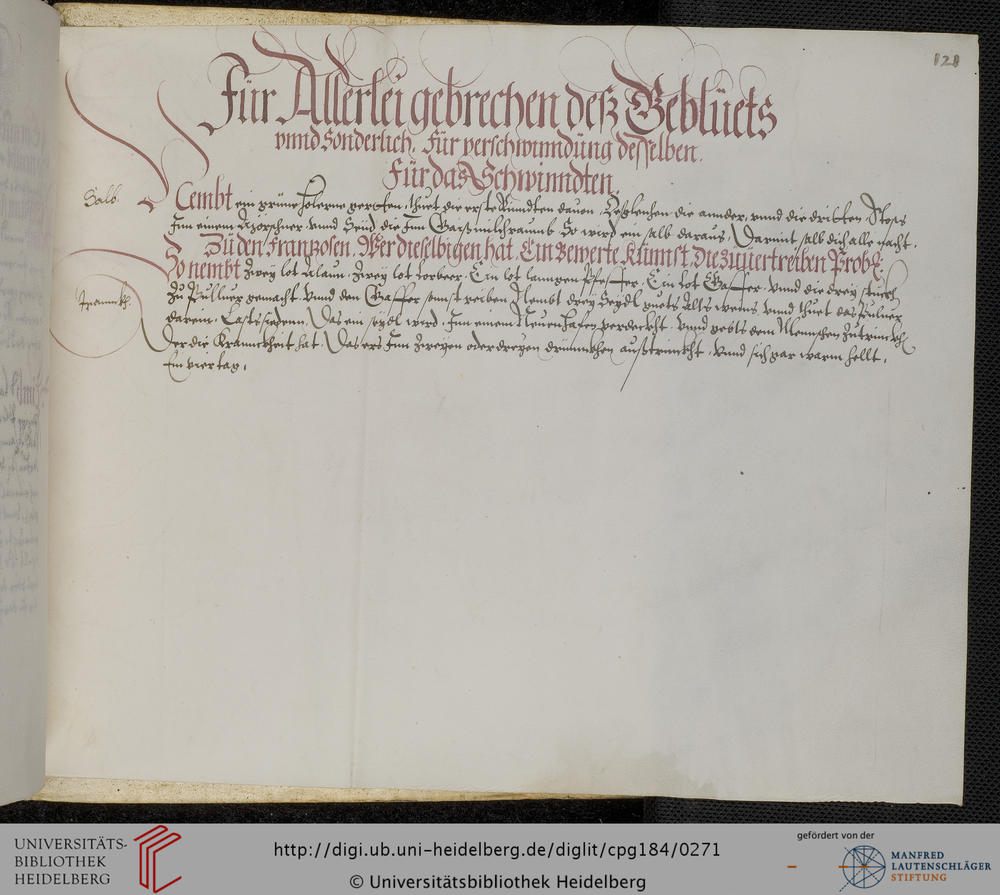 121
Für Allerlei gebrechen deß Geblüets
vnnd Sonderlich. Für verschwinndung desselben.
Für das Schwinndten.
Salb.
Nembt ein grüne holerne gertten, thuet die erste Rinndten dauon, die annder, vnnd die dritten, Stoss
Inn einem Mörschner, vnnd Seud die Inn Gaißmilchraumb So wird ein salb daraus, Darmit salb dich alle nacht.
Zu den Franzosen, Wer dieselbigen hat, Ein Bewerte Kunnst, Die zuuertreiben Prob:
Trannckh.
So nembt Zwey lot Alaun, Zwey lot Lorbeer, Ein lot lanngen Pfeffer, Ein lot Gaffer, vnnd die drey stuckh
Zu Pulluer gemacht, vnnd den Gaffer sunst reiben Nembt drey Seydl guets Allts weins, vnnd thuet das Puluer
darein, Lasts sieden, Das ein seydl wird, Inn einem Neuen hafen verdeckht, vnnd gebts dem Mennschen Zutrinckh
Der die Kranncheit hat, Das ers Inn Zweyen oder dreyen drünnckhen außtrinckht, vnnd sich gar warm hellt,
Ein vier tag.
UNIVERSITÄTS-
BIBLIOTHEK
HEIDELBERG
http://digi.ub.uni-heidelberg.de/diglit/cpg184/0271
© Universitätsbibliothek Heidelberg
gefördert von der
MANFRED
LAUTENSCHLÄGER
STIFTUNG